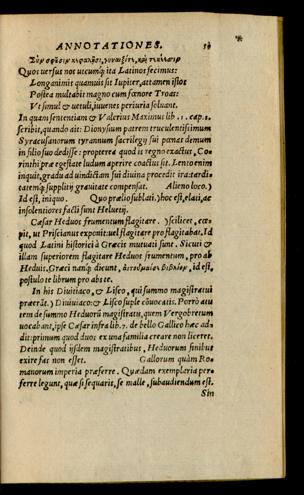 ANNOTATIONES. 59
Σὺν σφῇσιν κεφαλῇσι, γυναιξίτε, καὶ τεκέεσσιν
Quos uersus nos utcunq; ita Latinos fecimus:
Longanimis quamuis sit Iupiter, attamen istos
Postea multabit magno cum fœnore Troas:
Vt simul & uetuli, iuuenes periuria soluant.
In quam sententiam & Valerius Maximus lib. 1. cap. 2.
scribit, quando ait: Dionysium patrem truculentissimum
Syracusanorum tyrannum sacrilegij sui pœnas demum
in filio suo dedisse: propterea quod is regno exactus, Co-
rinthi præ egestate ludum aperire coactus sit. Lento enim
inquit, gradu ad uindictam sui diuina procedit ira: tardi-
tatemq; supplicij grauitate compensat. Alieno loco.)
Id est, iniquo. Quo prælio sublati.) hoc est, elati, ac
insolentiores facti sunt Heluetij.
Cæsar Heduos frumentum flagitare.) scilicet, cœ-
pit, ut Priscianus exponit: uel flagitare pro flagitabat. Id
quod Latini historici à Græcis mutuati sunt. Sicuti &
illam superiorem flagitare Heduos frumentum, pro ab
Heduis. Græci nanq; dicunt, βιβλίον, id est,
postulo te librum pro abs te.
In his Diuitiaco, & Lisco, qui summo magistratui
præerāt.) Diuiuiaco: & Lisco suple cōuocatis. Porrò atu
tem de summo Heduorū magistratu, quem Vergobretum
uocabant, ipse Cæsar infra lib. 7. de bello Gallico hæc ad-
dit: primum quod duos ex una familia creare non liceret.
Deinde quod ijsdem magistratibus, Heduorum finibus
exire fas non esset. Gallorum quàm Ro-
manorum imperia præferre. Quædam exemplaria per-
ferre legunt, quæ si sequaris, se malle, subaudiendum est.
Sin